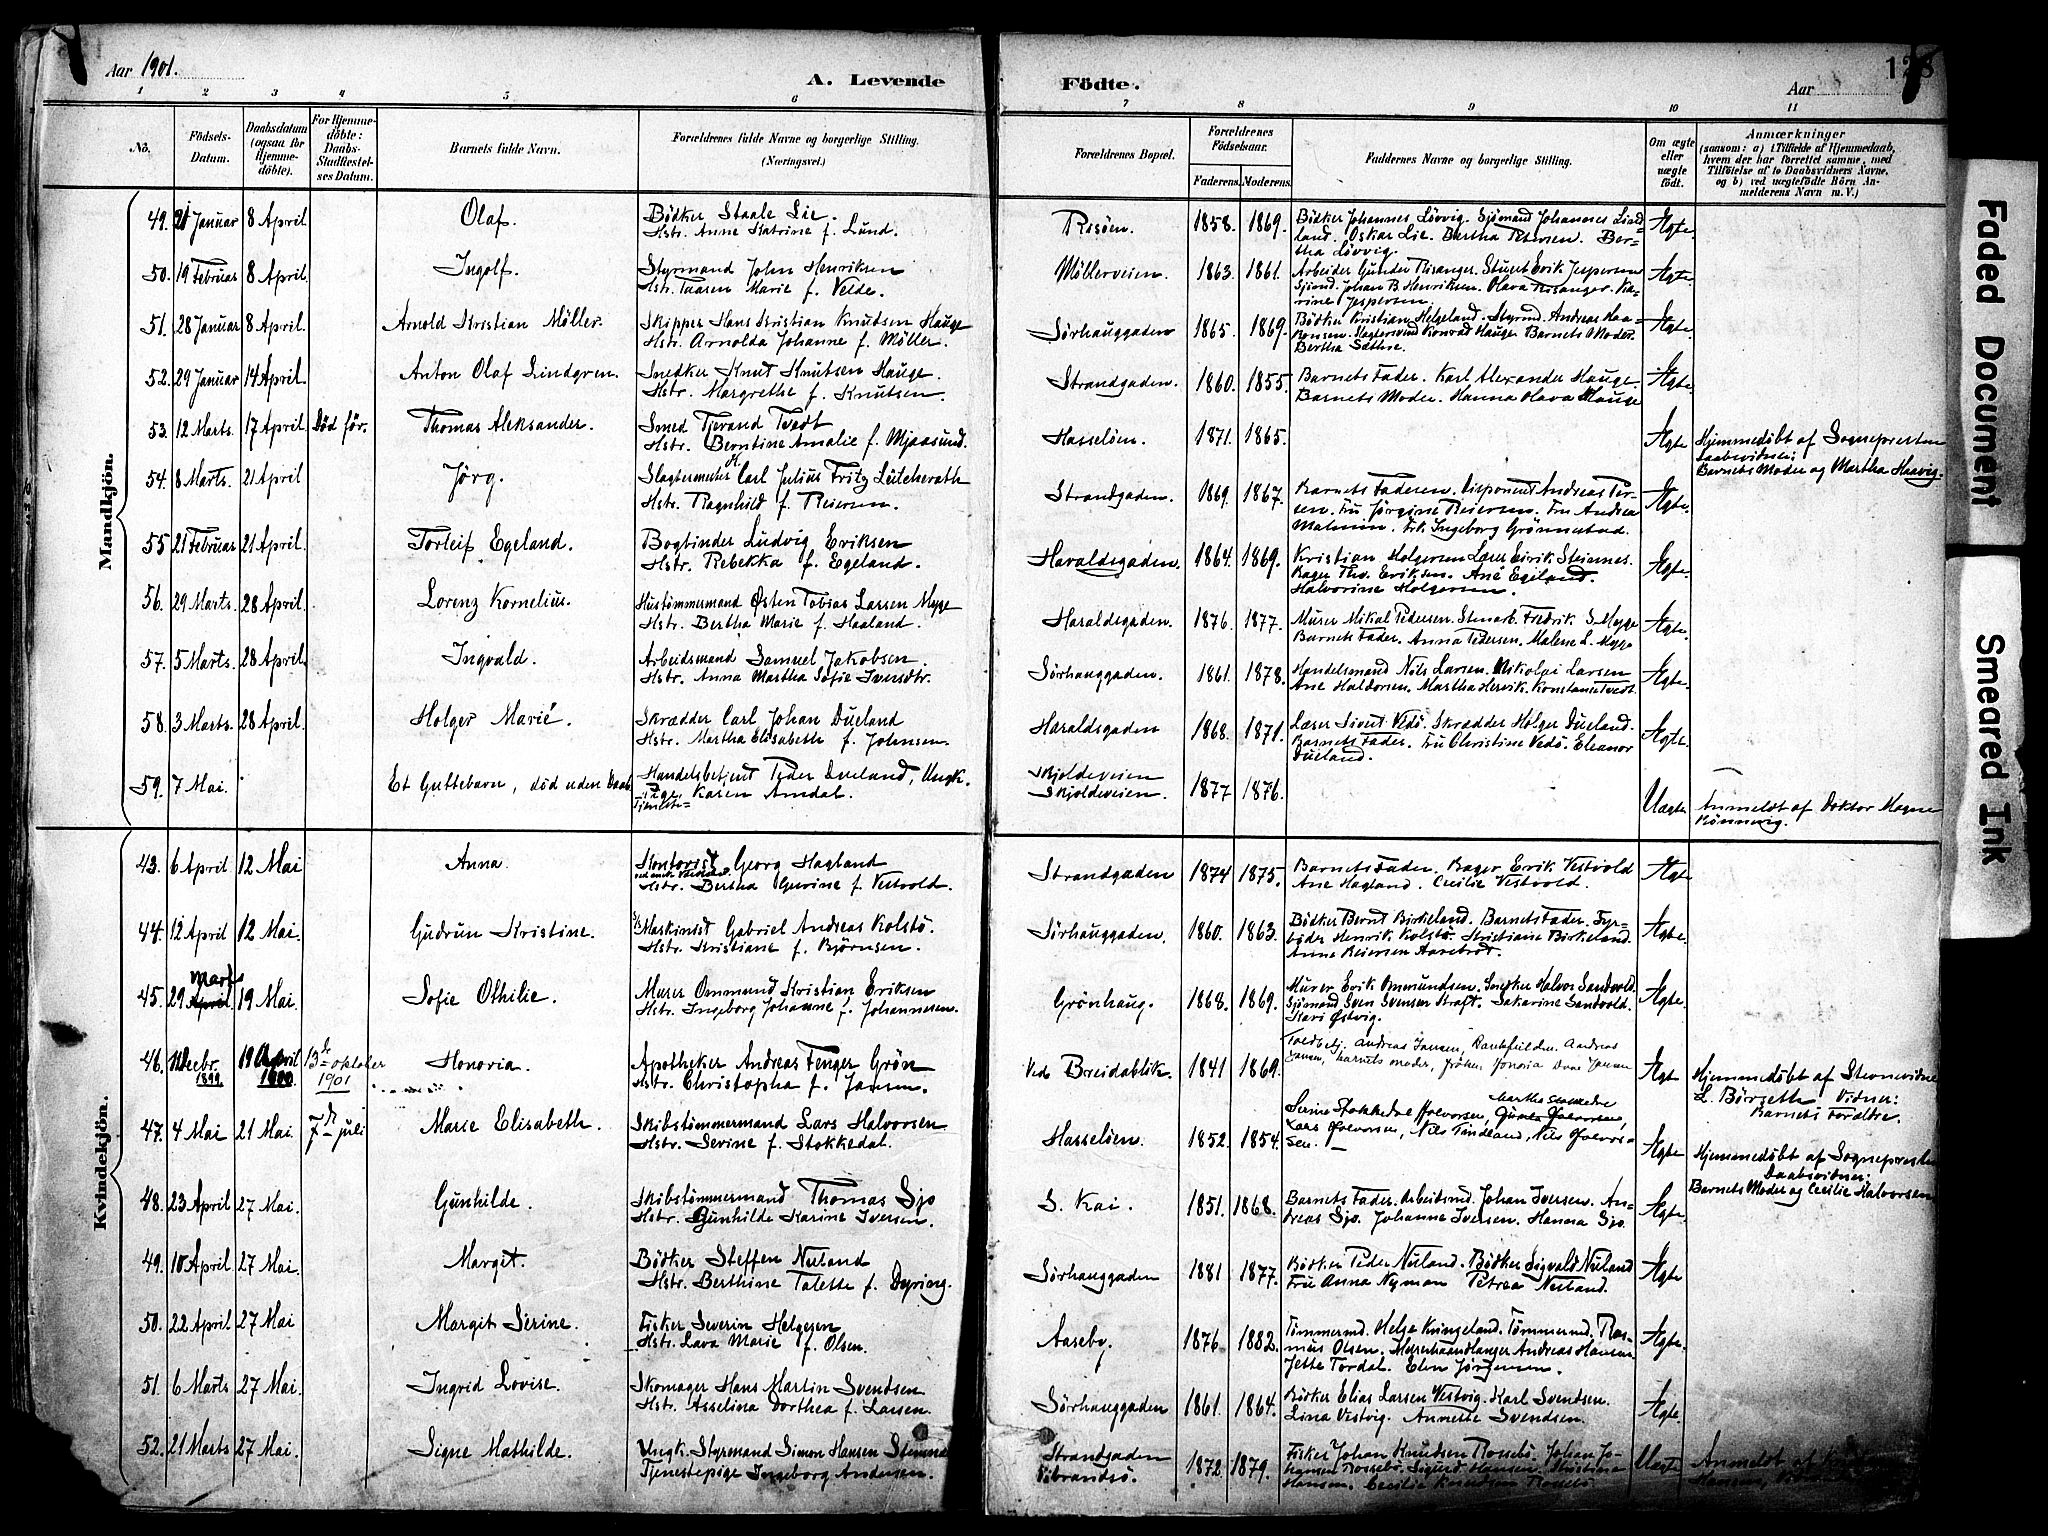 Aar 1901.
A. Levende
Födte.
Aar
128
1 2 3 4 5 6 7 8 9 10 11
No.
Födsels-Datum.
Daabsdatum (ogsaa for Hjemmedöbte).
For Hjemmedöbte: Daabs-Stadfæstelses Datum.
Barnets fulde Navn.
Forældrenes fulde Navne og borgerlige Stilling. (Næringsvei.)
Forældrenes Bopæl.
Forældrenes Födselsaar.
Faderens. Moderens.
Faddernes Navne og borgerlige Stilling.
Om ægte eller uægte födt.
Anmærkninger
(saasom: a) i Tilfælde af Hjemmedaab,
hvem der har forrettet samme, med
Tilföielse af to Daabsvidners Navne,
og b) ved uægtefödte Börn An-
melderens Navn m. V.)
Mandkjön.
49. 21 Januar 8 April Olaf. Bödker Staale Lie. Hstr. Anne Katrine f. Lund. Risöen. 1858. 1869. Bödker Johannes Lövvig. Sjömand Johannes Lind-
land. Oskar Lie. Bertha Petersen. Ber-
tha Lövvig. Ægte.
50. 19 Februar 8 April Ingolf. Styrmand John Henriksen Hstr. Taaren Marie f. Velde. Möllerveien. 1863. 1861. Arbeider Gunder Risanger. Stuert Erik Jespersen
Sjömd. Johan B. Henriksen. Olava Risanger. Ka-
rine Jespersen. Ægte.
51. 28 Januar 8 April Arnold Kristian Möller. Skipper Hans Kristian Knutsen Hauge Hstr. Arnolda Johanne f. Möller. Sörhauggaden 1865. 1869. Bödker Kristian Helgeland. Styrmd. Andreas Haa-
konsen. Slagtersvend Konrad Hauge Barnets Moder.
Bertha Sæthre. Ægte.
52. 29 Januar 14 April Anton Olaf Lindgren. Snedker Knut Knutsen Hauge. Hstr. Margrethe f. Knutsen. Strandgaden. 1860. 1855. Barnets Fader. Karl Alexander Hauge.
Barnets Moder. Hanna Olava Hauge Ægte.
53. 12 Marts. 17 April Död för. Thomas Aleksander. Smed Tjerand Tvedt Hstr. Berntine Amalie f. Mjaasund. Hasselöen. 1871. 1865. Ægte Hjemmedöbt af Sognepresten
Daabsvidner:
Barnets Moder og Martha Haavig.
54. 8 Marts. 21 April Jörg. Slagtermester Carl Julius Fritz Leitcherath Hstr. Ragnhild f. Reiersen. Strandgaden. 1869. 1867. Barnets Faderen. Disponent Andreas Pet-
ersen. Fru Jörgine Reiersen. Fru Andrea
Malmin. Frk. Ingeborg Grönnestad. Ægte.
55 21 Februar 21 April Torleif Egeland. Bogbinder Ludvig Eriksen Hstr. Rebekka f. Egeland. Haraldsgaden. 1864. 1869. Kristian Holgersen Lærer Eirik Steinnes.
Bager Ths. Eriksen. Ane Egeland.
Halvorine Holgersen. Ægte.
56. 29 Marts. 28 April. Lorenz Kornelius. Hustömmermand Östen Tobias Larsen Myge Hstr. Bertha Marie f. Haaland. Haraldsgaden. 1876. 1877. Murer Mikal Pedersen. Stenarb. Fredrik S. Mygge
Barnets Fader. Anna Pedersen. Malene L. Mygge Ægte.
57. 5 Marts. 28 April. Ingvald. Arbeidsmand Samuel Jakobsen. Hstr. Anna Martha Sofie Iversdtr. Sörhauggaden. 1861. 1878. Handelsmand Nils Larsen. Mikolai Larsen
Ane Haldorsen. Martha Hervik. Konstanse Tvedt. Ægte.
58. 3 Marts. 28 April. Holger Marié. Skrædder Carl Johan Dueland Hstr. Martha Elisabeth f. Johnsen. Haraldsgaden 1868. 1871. Læser Sivert Vedö. Skrædder Holger Dueland.
Barnets Fader. Fru Christine Vedö. Eleanor
Dueland. Ægte.
59. 7 Mai. Et Guttebarn, död uden Daab Handelsbetjent Peder Dueland, Ungk. Tjeneste-Pige, Karen Amdal. Skjoldeveien Skjoldeveien. 1877 1876. Uægte Anmeldt af Doktor Magne
Rönnevig.
Kvindekjön.
43. 6 April 12 Mai Anna. Kontorist Georg Hagland Hstr. Bertha Gurine f. Vestvold. Strandgaden 1874 1875. Barnets Fader. Bager Erik Vestvold
Ane Hagland. Cecilie Vestvold. Ægte
44. 12 April 12 Mai. Gudrun Kristine. Maskinist Gabriel Andreas Kolstö. Hstr. Kristiane f. Björnsen. Sörhauggaden. 1860. 1863. Bödker Bernt Birkeland. Barnets Fader. Fyr-
böder Henrik Kolstö. Kristiane Birkeland.
Anne Reiersen Aarebrot. Ægte.
45. 29 Marts April 19 Mai. Sofie Othilie. Murer Ommund Kristian Eriksen Hstr. Ingeborg Johanne f. Johannesen. Grönhaug. 1868. 1869. Murer Erik Ommundsen. Snedker Halvor Sandvold.
Sjömand Sven Svensen Kraft. Sakarine Sandvold.
Kari Östvig. Ægte.
46. Decbr. 1899. 19 April 1900. 13de oktober 1901 Honoria. Apotheker Andreas Fenger Grön Hstr. Christopha f. Jansen. Ved Breidablik. 1841 1869. Toldbetj. Andreas Jansen, Andreas
Jansen, barnets moder, fröken Honoria Jansen Ægte Hjemmedöbt af Stevnevidne
L. Börseth Vidner:
Barnets Forældre.
47. 4 Mai 21 Mai. 7de juli Marie Elisabeth. Skibstömmermand Lars Halvorsen Hstr. Serine f. Stokkedal. Hasselöen. 1852. 1854. Martha Stokkedal
Serine Stokkedal Halvorsen,
Lars Halvorsen, Nils Tindeland, Nils Halvor-
sen. Ægte Hjemmedöbt af Sognepresten
Daabsvidner:
Barnets Moder og Cecilie Halvorsen
48. 23 April 27 Mai. Gunhilde. Skibstömmermand Thomas Sjo Hstr. Gunhilde Karine Iversen. S. Kai. 1851. 1868. Barnets Fader. Arbeidsmd. Johan Iversen. An-
dreas Sjo. Johanne Iversen. Hanna Sjo. Ægte.
49. 10 April 27 Mai. Margit. Bödker Steffen Neiland Hstr. Berthine Talette f. Dyring. Sörhauggaden 1881 1877. Bödker Peder Neiland. Bödker Sigvald Neiland
Fru Anna Nyman Petrea Neiland. Ægte
50. 22 April 27 Mai Margit Serine. Fisker Severin Helgesen Hstr. Lava Marie f. Olsen. Aaseby. 1876 1882. Tömmermd. Helge Kringeland. Tömmermd. Ras-
mus Olsen. Andreas Hansen
Jette Tordal. Elen Jörgensen. Ægte.
51. 6 Marts 27 Mai. Ingrid Lovise. Skomager Hans Martin Svendsen Hstr. Asselina Dorthea f. Larsen. Sörhauggaden 1861. 1864. Bödker Elias Larsen Vestvig. Karl Svendsen.
Lina Vestvig. Annette Svendsen. Ægte.
52. 21 Marts 27 Mai. Signe Mathilde. Ungk. Styrmand Simon Hansen Tjenestepige Ingeborg Andersen. Strandgaden Vibrandsö. 1872 1879. Fisker Johan Knudsen Rossebö. Johan Jo-
hansen Rossebö. Sigurd Hansen. Kristine
Hansen. Cecilie Knudsen Rossebö. Uægte Anmeldt af
Faded Document
Smeared Ink